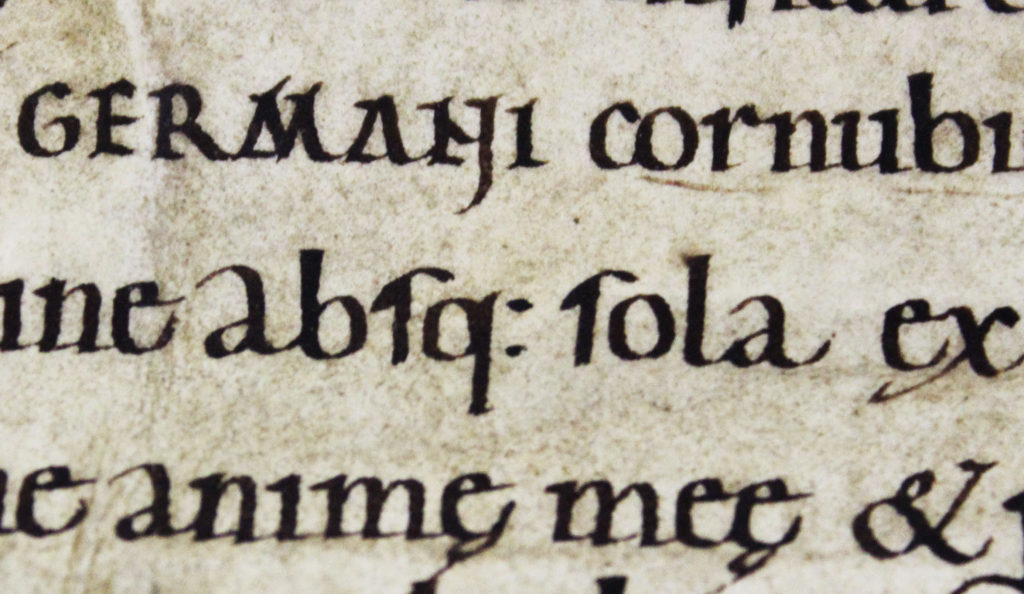 GERMANI cornubi
ine absq: sola ex
ue animę meę &